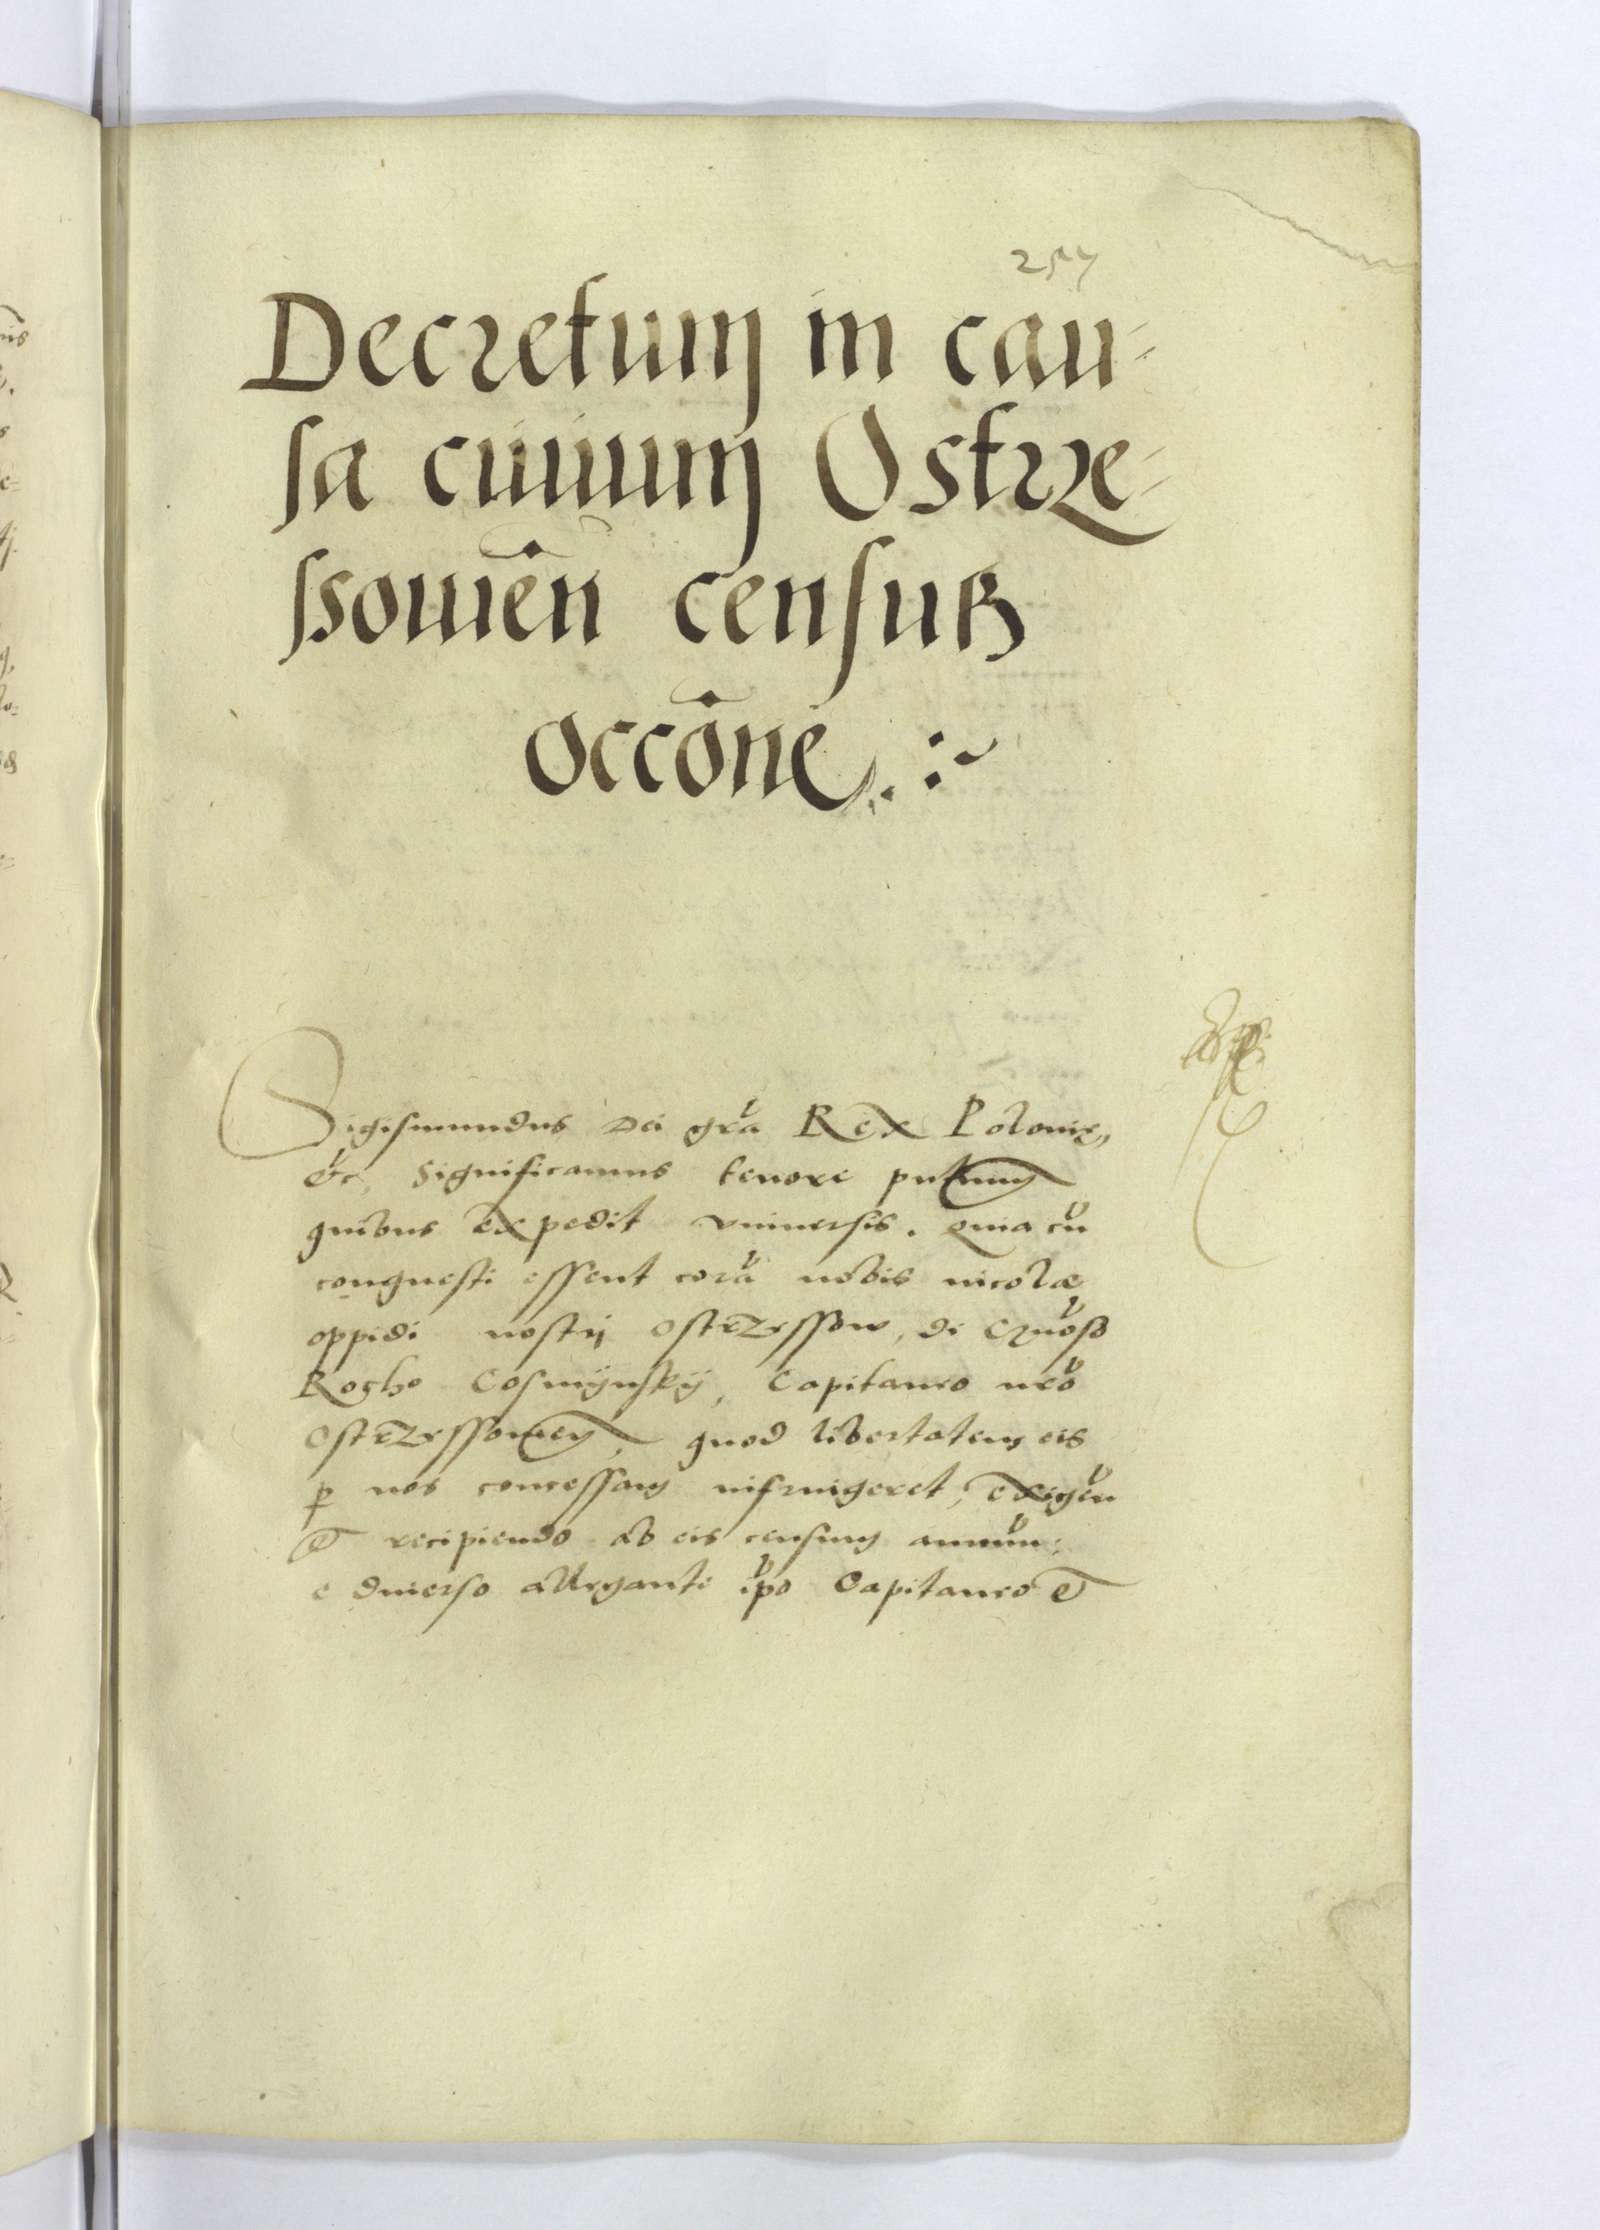 Decretum in cau-
sa ciuium Ostrze-
ssowien̄ censuū
occōne .:~
Sigismundus Dei gr̃a Rex Polonie,
etc, Significamus tenore pn̄tium
quibus expedit vniuersis. Quia cū
conquesti essent corā nobis incolæ
oppidi nostri Ostrzessow, de
Rocho Cosmÿnskÿ, Capitaneo nr̃o
Ostrzessowien, quod libertatem eis
ꝑ nos concessam infringeret, exigeñ
et recipiendo ab eis censum annuū:
e diuerso allegante ip̃o Capitaneo et